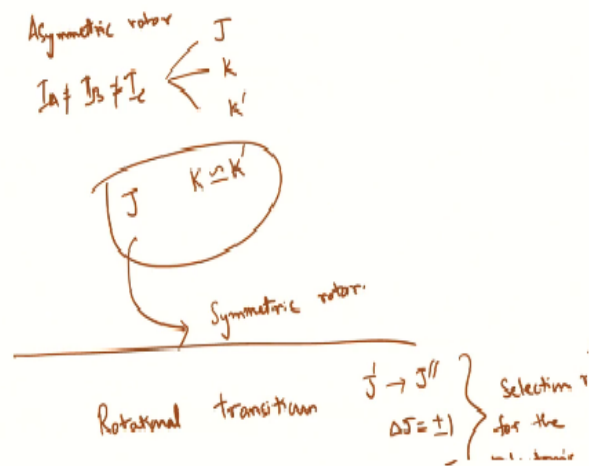 Asymmetric rotor
I_A ≠ I_B ≠ I_C
J
K
K'
K ≃ K'
J
Symmetric rotor.
Rotational transition
J' → J''
ΔJ = ±1
Selection
for the